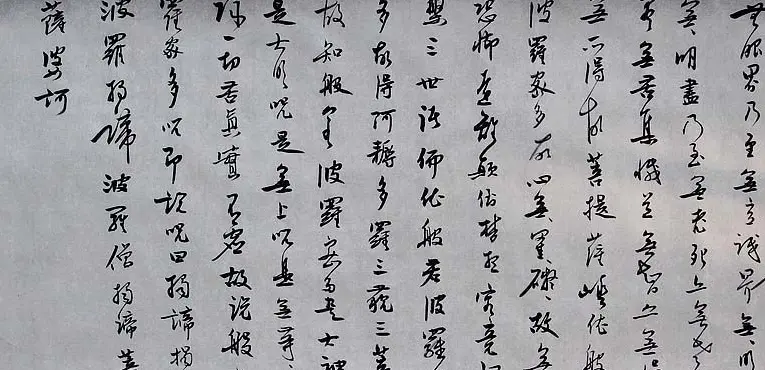 無眼界乃至無意識界無、明
無、明盡乃至無老死亦無老
盡無苦集滅道無智亦無得
無所得故菩提薩埵依般
波羅蜜多故心無罣礙、故無
恐怖遠離顛倒夢想究竟
槃三世諸佛依般若波羅
多故得阿耨多羅三藐三菩
故知般若波羅蜜多是大神
是大明咒是無上咒是無等、
除一切苦真實不虛故說般
羅蜜多咒即說咒曰揭諦揭
波羅揭諦波羅僧揭諦菩
薩婆訶